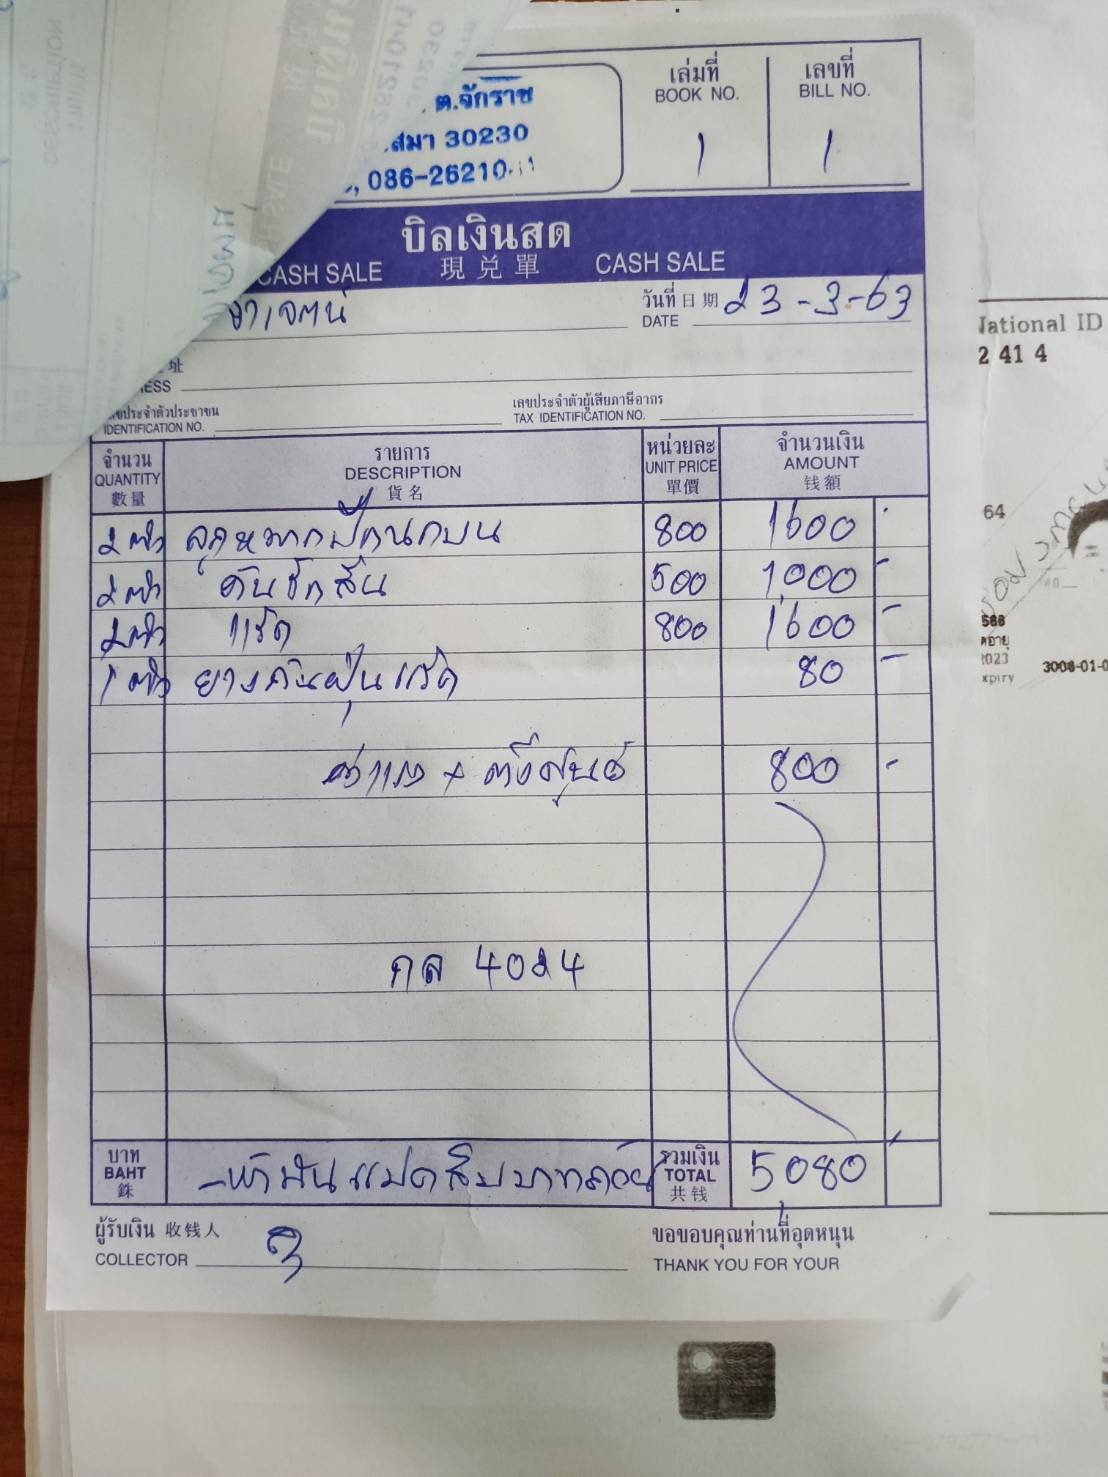 ต.จักราช
สีมา 30230
086-26210
เล่มที่
BOOK NO.
1
เลขที่
BILL NO.
1
บิลเงินสด
CASH SALE 現兑單 CASH SALE
วันที่ 日期 23-3-63
DATE
址
ESS
ประจำตัวประชาชน
IDENTIFICATION NO.
เลขประจำตัวผู้เสียภาษีอากร
TAX IDENTIFICATION NO.
จำนวน
QUANTITY
數量
รายการ
DESCRIPTION
貨名
หน่วยละ
UNIT PRICE
單價
จำนวนเงิน
AMOUNT
钱額
2 ตัว ลูกหมากปีกนกบน 800 1600
2 ตัว คันชักสั้น 500 1,000 -
2 ตัว แร็ค 800 1600 -
1 ตัว ยางกันฝุ่นแร็ค 80 -
ค่าแรง + ตั้งศูนย์ 800 -
กล 4024
บาท
BAHT
銖
-ห้าพันแปดสิบบาทถ้วน
รวมเงิน
TOTAL
共钱
5,080
ผู้รับเงิน 收钱人
COLLECTOR
ขอขอบคุณท่านที่อุดหนุน
THANK YOU FOR YOUR
National ID
2 41 4
64
588
2023
3008-01-0